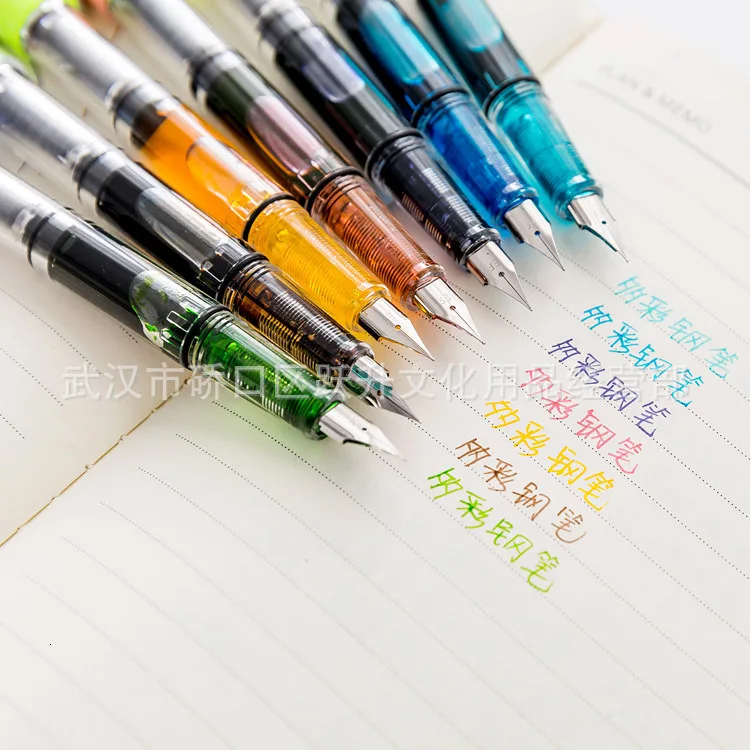 PLAN & MEMO
多彩钢笔
多彩钢笔
多彩钢笔
武汉市硚口区跃升文化用品经营部
多彩钢笔
多彩钢笔
多彩钢笔
多彩钢笔